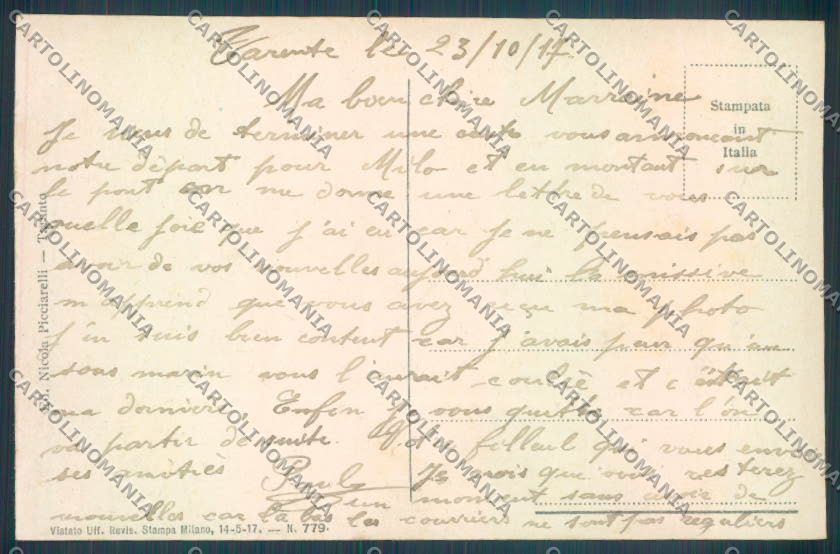 Tarente le 23/10/17
Ma bien chère Marraine
Stampata
in
Italia
Je viens de terminer une carte vous annonçant
notre départ pour Milo et en montant sur
le pont on me donne une lettre de vous
quelle joie que j'ai eu car je ne pensais pas
avoir de vos nouvelles aujourd'hui la missive
m'apprend que vous avez reçu ma photo
j'en suis bien content car j'avais peur qu'un
sous marin vous l'aurait coulée et c'était
ma dernière. Enfin je vous quitte car l'on
va partir de suite. Votre filleul qui vous envoie
ses amitiés Paul
Je crois que vous resterez
un moment sans avoir de
nouvelles car là bas les courriers ne sont pas réguliers
Nicola Picciarelli — Taranto
Vistato Uff. Revis. Stampa Milano, 14-5-17. — N. 779.
CARTOLINOMANIA